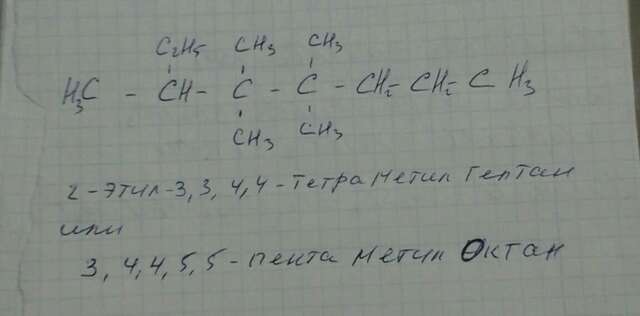 C2H5 CH3 CH3
H3C - CH - C - C - CH2 - CH2 - CH3
CH3 CH3
2-этил-3,3,4,4-тетраметил гептан
или
3,4,4,5,5-пента метил октан